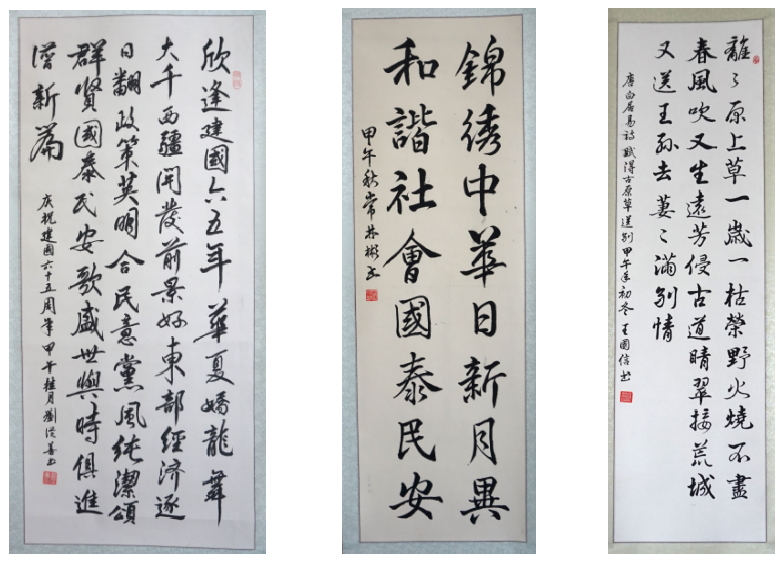 欣逢建國六五年華夏嬌龍舞
大千西疆開發前景好東部經济逐
日翻政策英明合民意黨風純潔頌
群賢國泰民安歌盛世與時俱進
譜新篇
庆祝建國六十五周年甲午桂月劉從善书
錦綉中華日新月異
和諧社會國泰民安
甲午秋常林彬书
離々原上草一歲一枯榮野火燒不盡
春風吹又生遠芳侵古道晴翠接荒城
又送王孫去萋々滿別情
唐白居易詩賦得古原草送別甲午年初冬王國信书